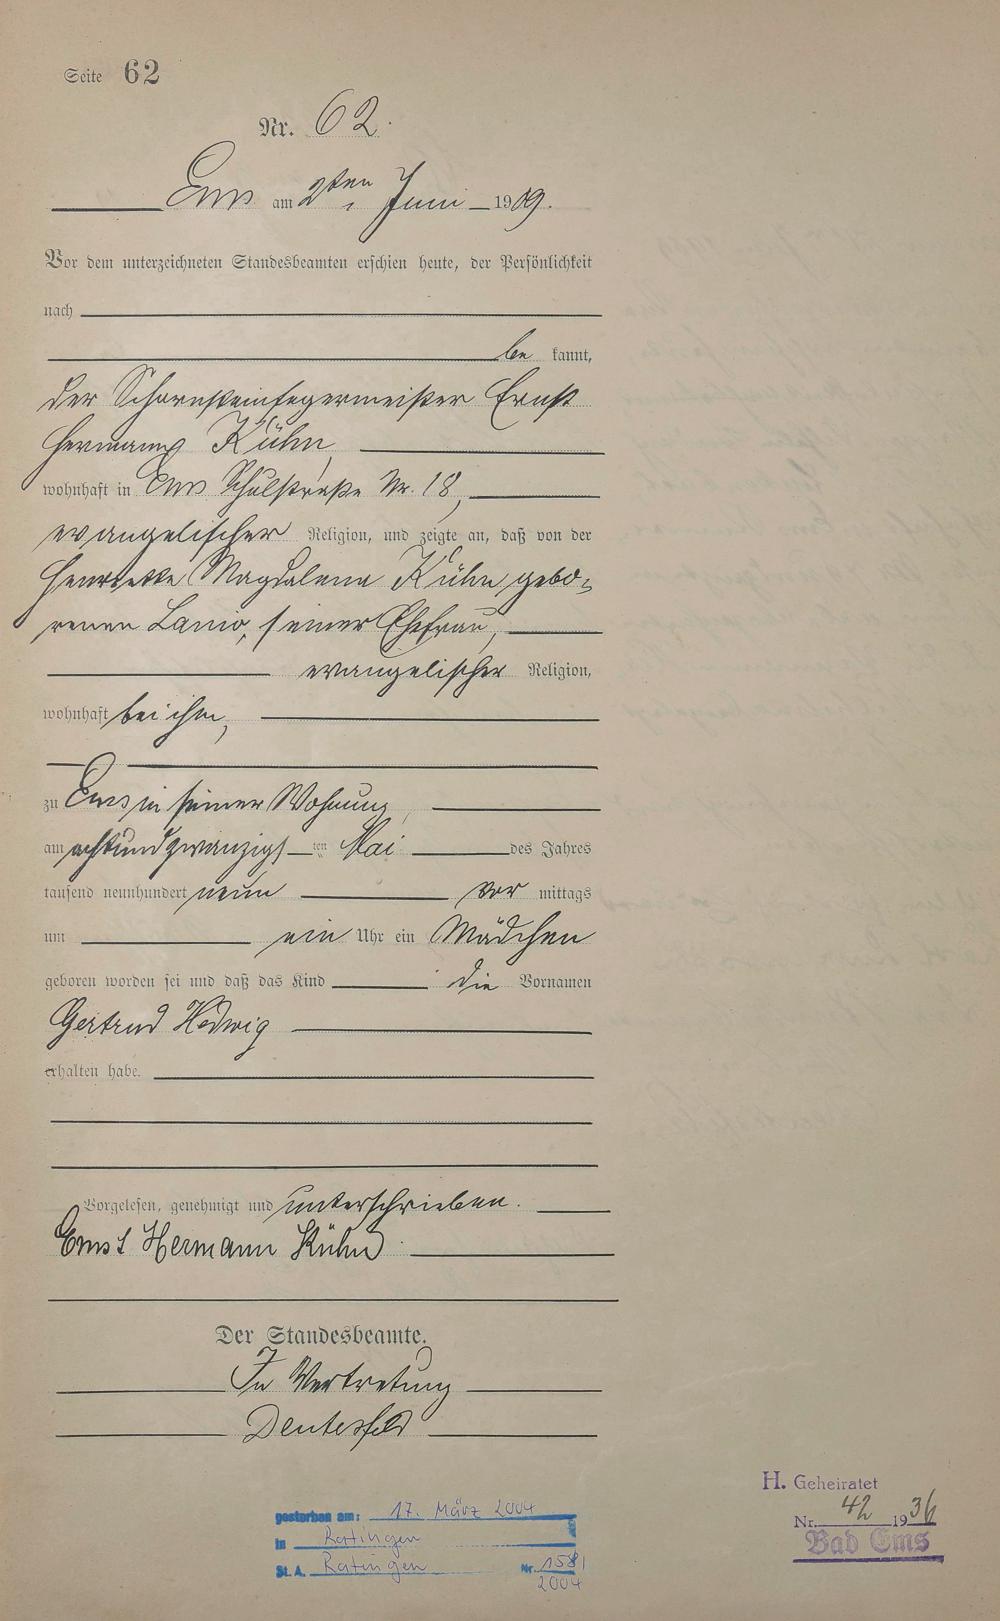 Seite 62
Nr. 62.
Ems am 2ten Juni 1909.
Vor dem unterzeichneten Standesbeamten erschien heute, der Persönlichkeit
nach
be kannt,
der Schornsteinfegermeister Ernst
Hermann Kühn,
wohnhaft in Ems Schulstraße Nr. 18,
evangelischer Religion, und zeigte an, daß von der
Henriette Magdalena Kühn gebo-
renen Lanio, seiner Ehefrau,
evangelischer Religion,
wohnhaft bei ihm,
zu Ems in seiner Wohnung,
am achtundzwanzigsten Mai des Jahres
tausend neunhundert neun vor mittags
um ein Uhr ein Mädchen
geboren worden sei und daß das Kind die Vornamen
Gertrud Hedwig
erhalten habe.
Vorgelesen, genehmigt und unterschrieben.
Ernst Hermann Kühn
Der Standesbeamte.
In Vertretung
gestorben am: 17. März 2004
in Ratingen
St. A. Ratingen Nr. 158/
2004
H. Geheiratet
Nr. 42 1936
Bad Ems